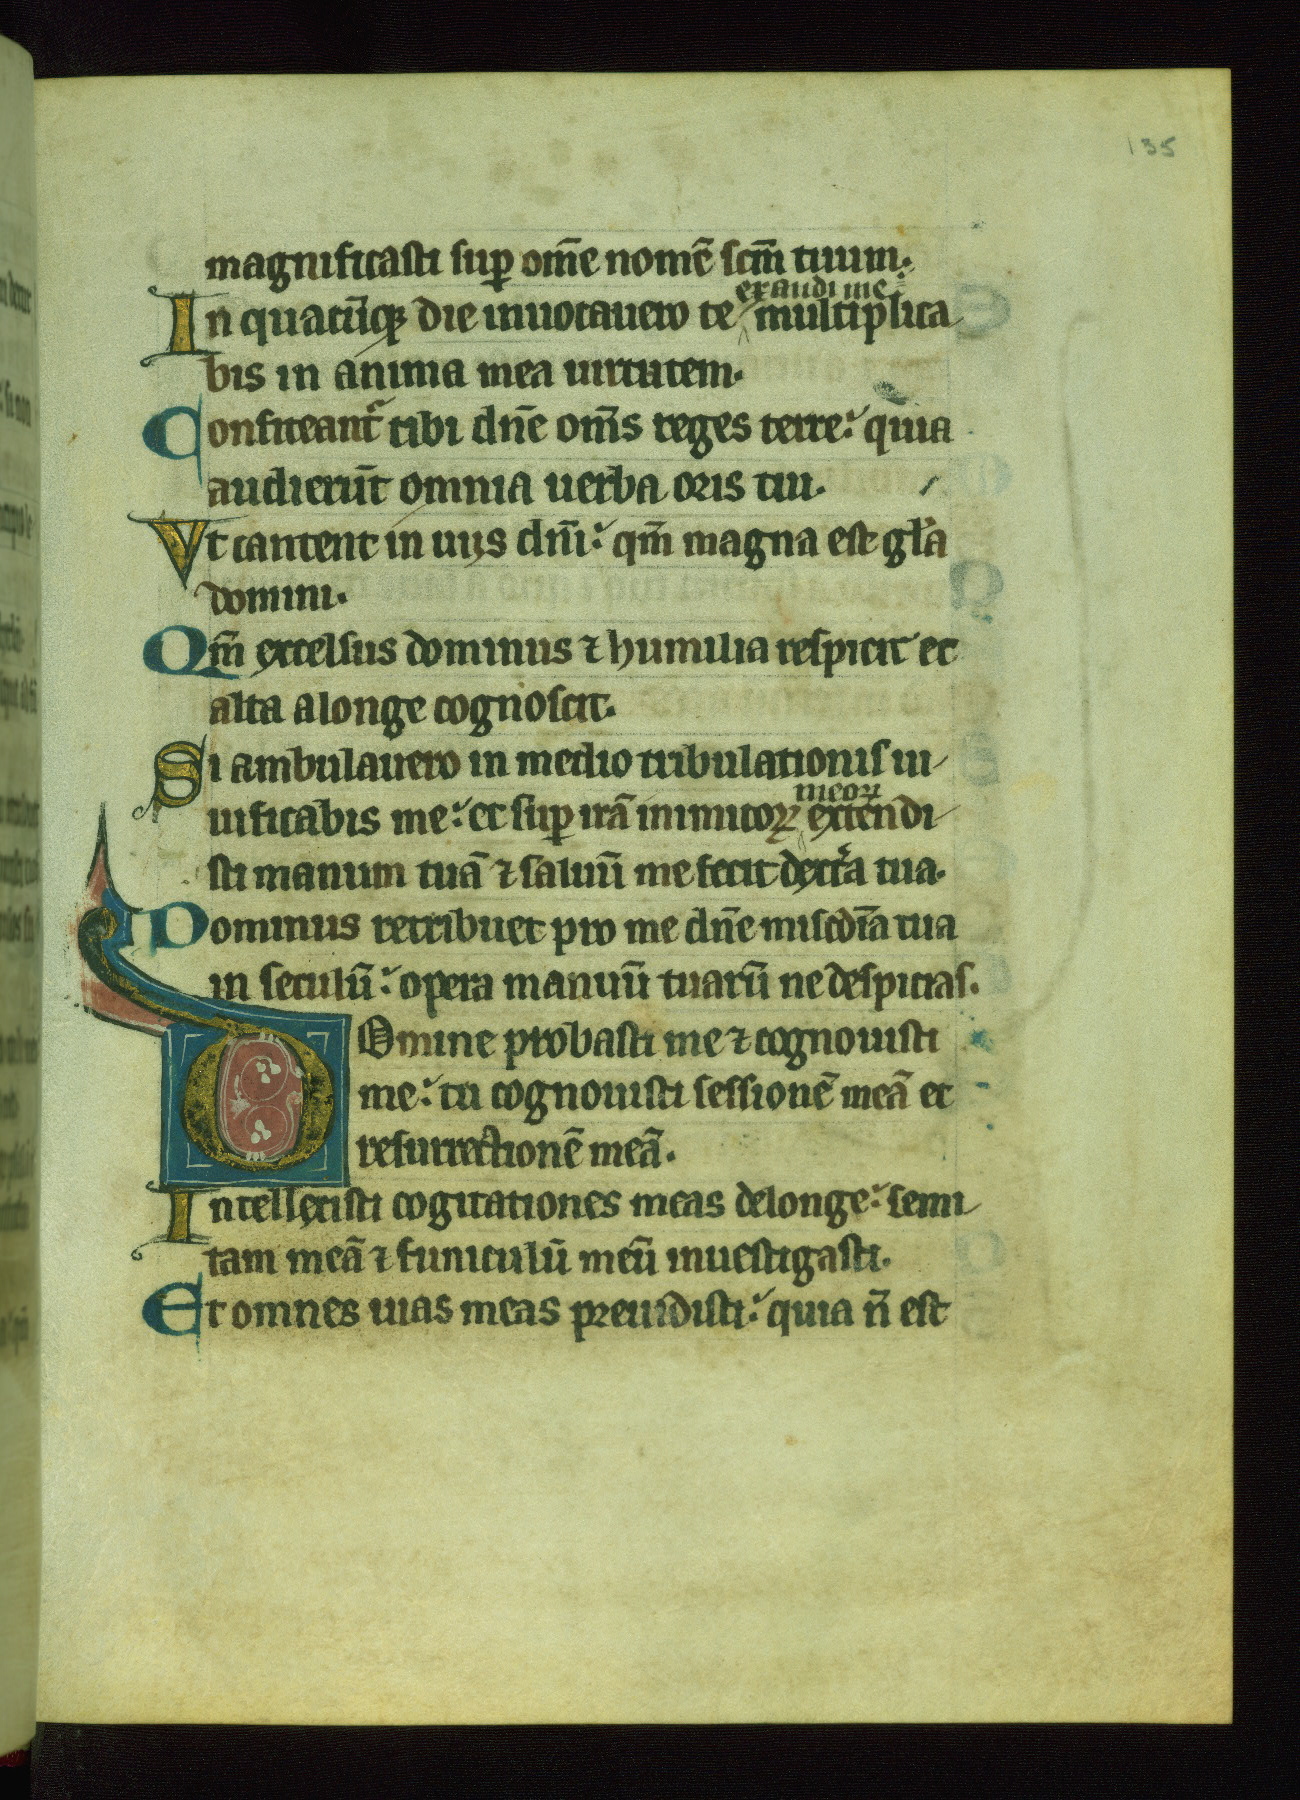 135
magnificasti sup̱ om̄e nomē scm̄ tuum.
exaudi me
In quacūq̨ die inuocauero te multiplica
bis in anima mea uirtutem.
Confiteant᷑ tibi dn̄e om̄s reges terre: quia
audierūt omnia uerba oris tui.
Vt cantent in uijs dn̄i: qm̄ magna est gl̄a
domini.
Qm̄ excelsus dominus ⁊ humilia respicit et
alta alonge cognoscit.
Si ambulauero in medio tribulationis ui
meoꝝ
uificabis me: et sup̱ irā inimicoꝝ extendi
sti manum tuā ⁊ saluū me fecit dext̾a tua.
Dominus retribuet pro me dn̄e misc̄dia tua
in seculū: opera manuū tuarū ne despicias.
Domine probasti me ⁊ cognouisti
me: tu cognouisti sessionē meā et
resurrectionē meā.
Intellexisti cogitationes meas delonge: semi
tam meā ⁊ funiculū meū inuestigasti.
Et omnes uias meas preuidisti: quia n̄ est